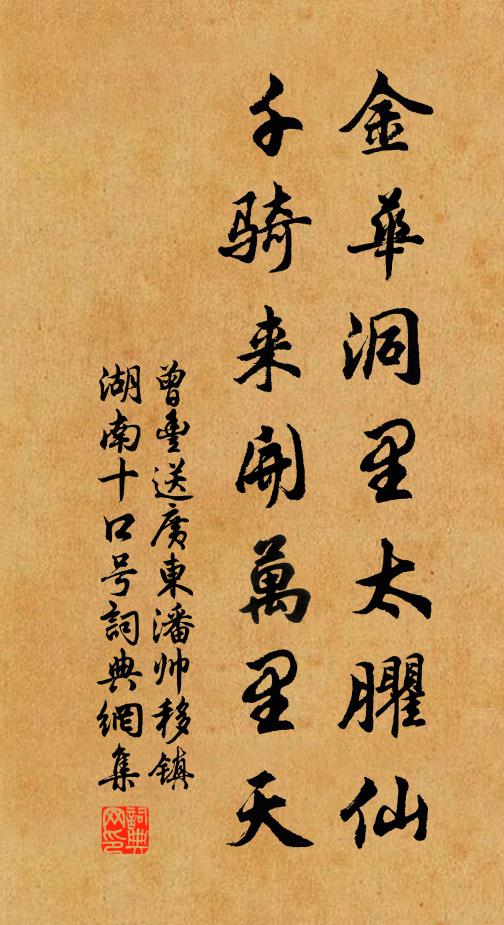 金華洞里太臞仙
千騎来開萬里天
曾豐送廣東潘帅移鎮
湖南十口号詞典網集
詞典网印